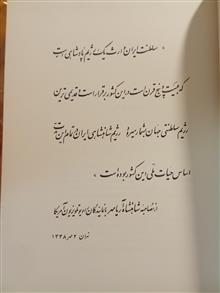 « سلطنت ایران وارث یک رژیم پادشاهی است
که بیست و پنج قرن است در این کشور برقرار است و قدیمی ترین
رژیم سلطنتی جهان بشمار میرود رژیم شاهنشاهی ایران
اساس حیات ملی این کشور بوده است »
از مصاحبه شاهنشاه آریامهر با نمایندگان رادیو تلویزیون آمریکا
تهران ۲ مهر ۱۳۳۸